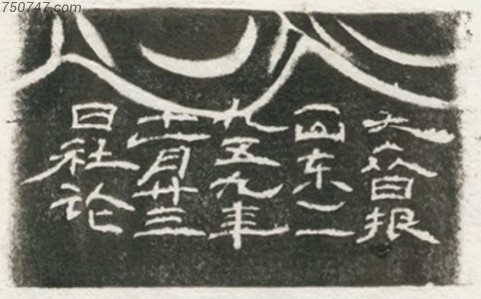 750747.com
大众日报
（山东）一
九五九年
十一月廿三
日社论